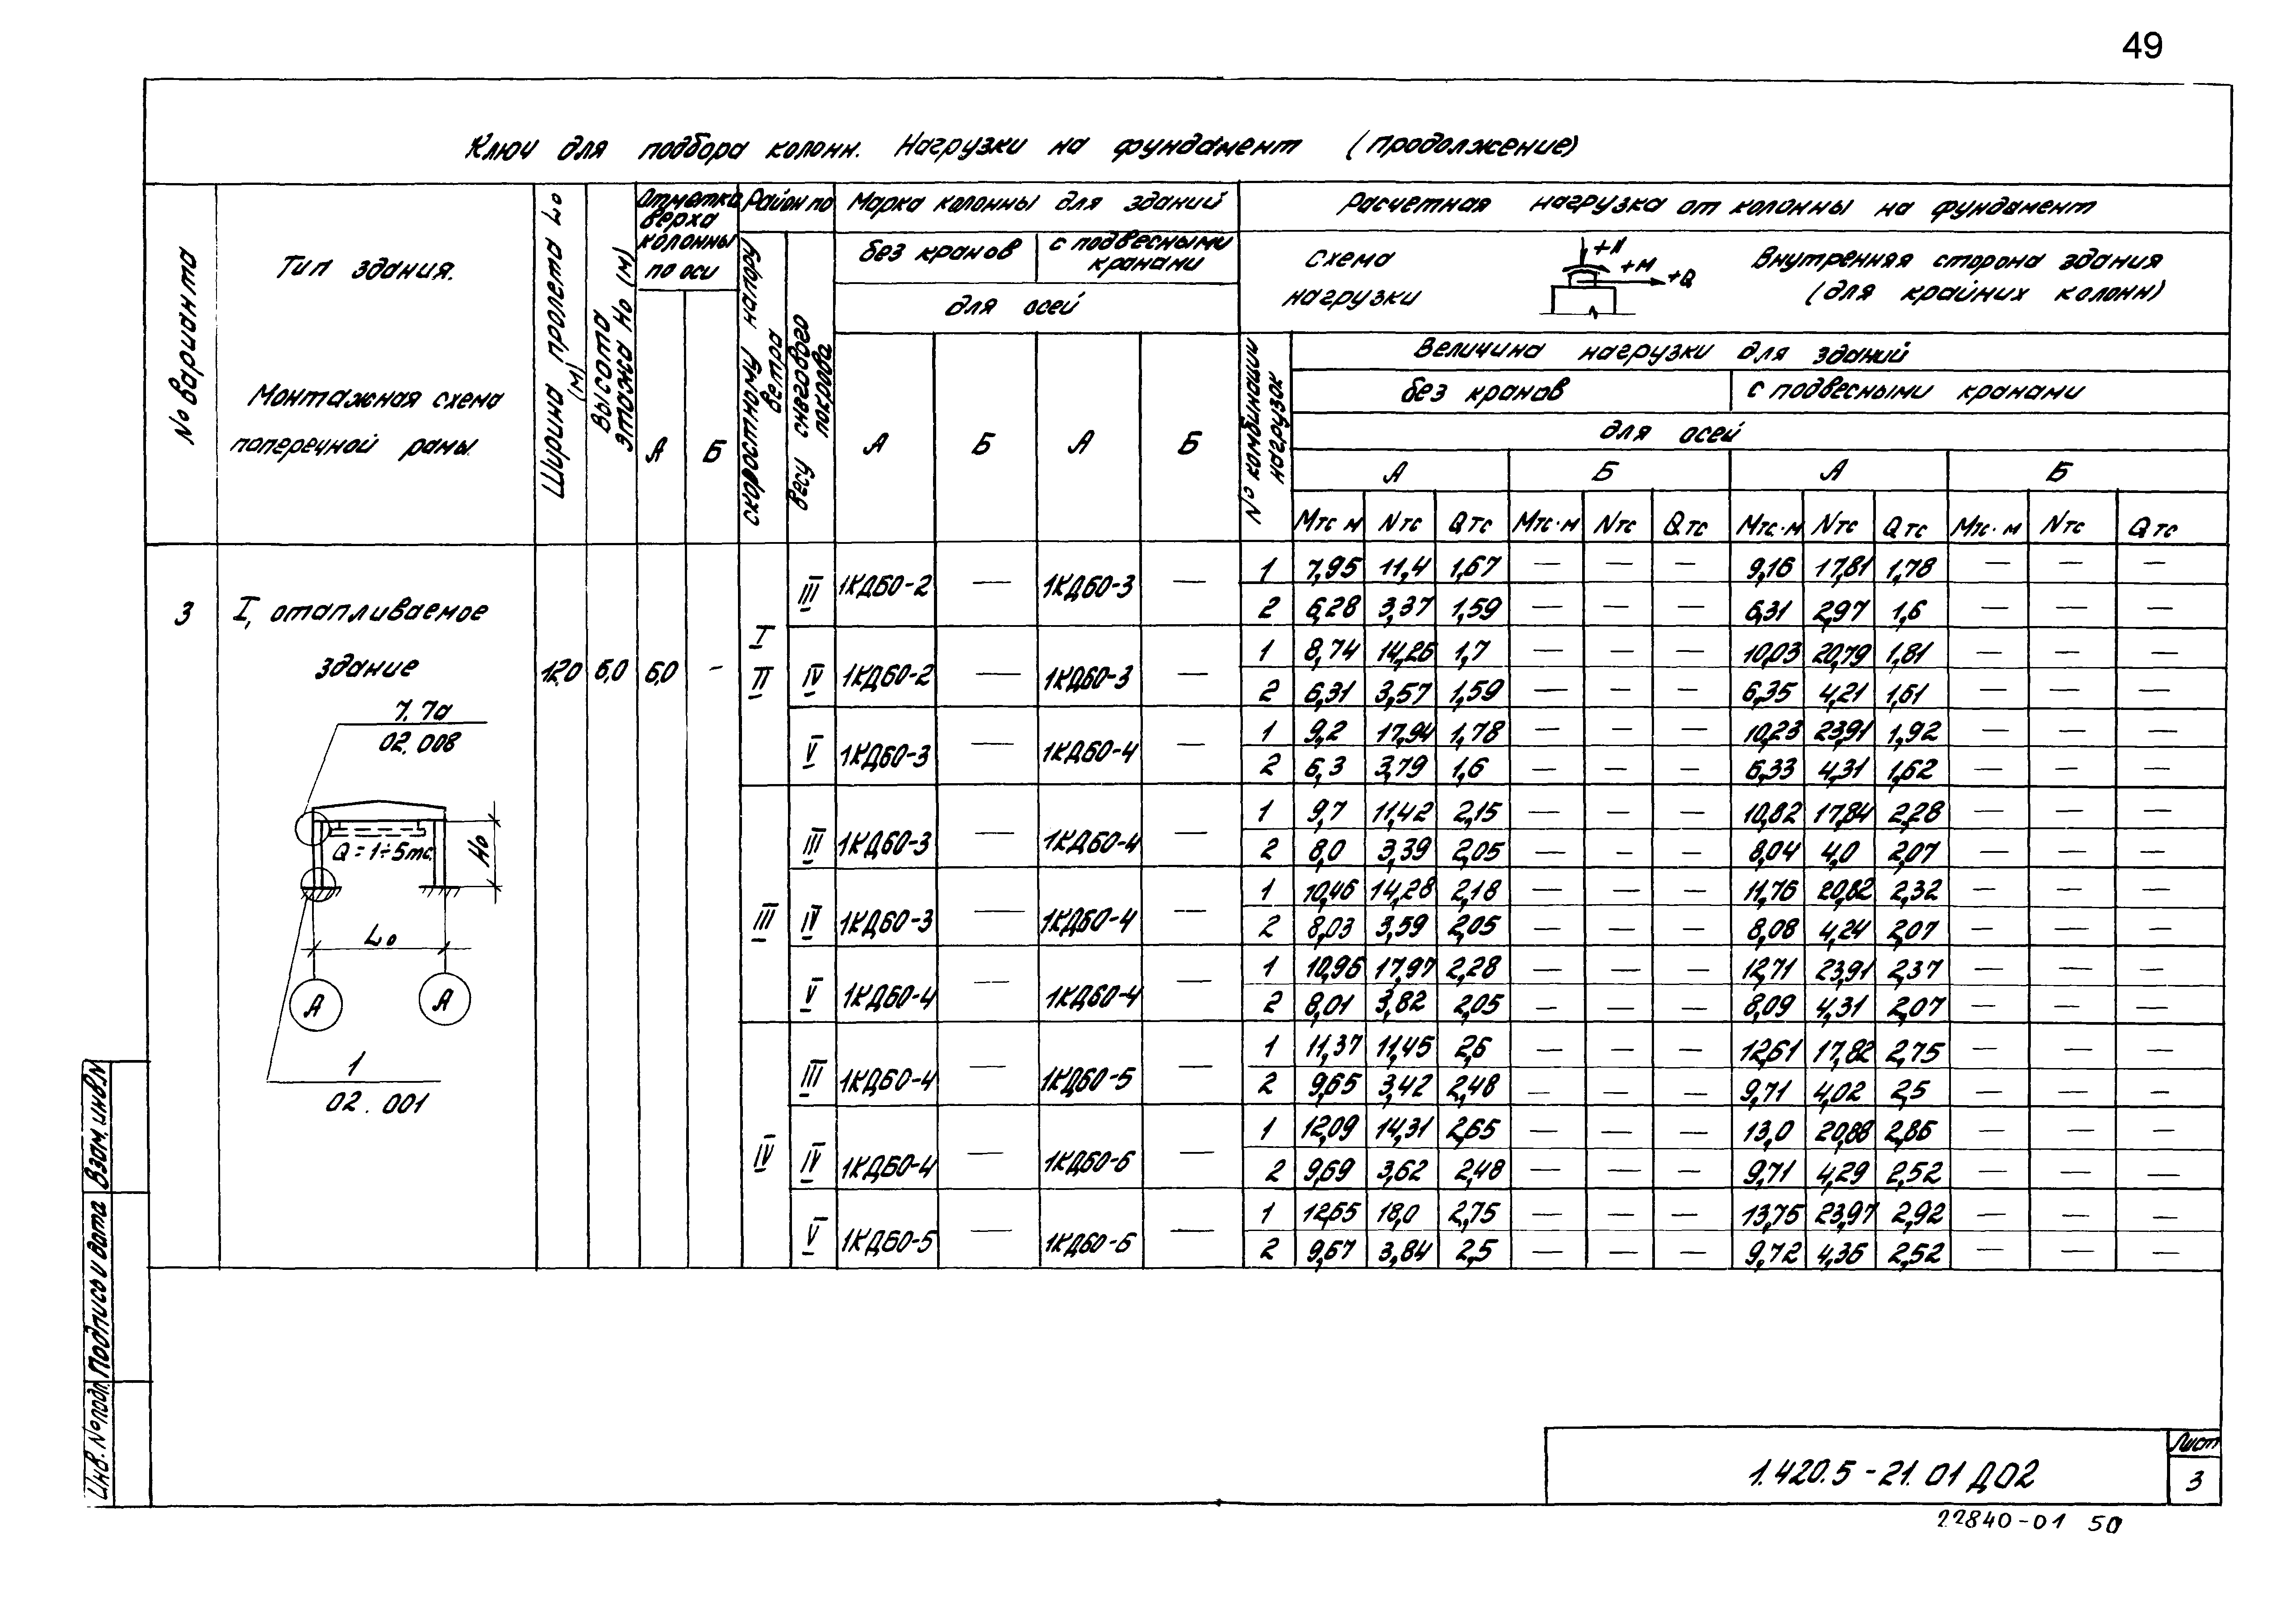 49
Ключ для подбора колонн. Нагрузки на фундамент (продолжение)
№ варианта
Тип здания.
Монтажная схема
поперечной рамы.
Ширина пролета L₀ (м)
Высота этажа H₀ (м)
Отметка верха колонны по оси
А Б
Район по
скоростному напору ветра
весу снегового покрова
Марка колонны для зданий
без кранов с подвесными кранами
для осей
А Б А Б
Расчетная нагрузка от колонны на фундамент
Схема нагрузки
+N +M +Q
Внутренняя сторона здания
(для крайних колонн)
№ комбинации нагрузок
Величина нагрузки для зданий
без кранов с подвесными кранами
для осей
А Б А Б
Мтс м Nтс Qтс Мтс·м Nтс Qтс Мтс·м Nтс Qтс Мтс·м Nтс Qтс
3 I, отапливаемое здание 12,0 6,0 6,0 -
7, 7а
02.008
Q = 1÷5тс
H₀
L₀
А А
1
02.001
I II III 1КД60-2 — 1КД60-3 —
1 7,95 11,4 1,67 — — — 9,16 17,81 1,78 — — —
2 6,28 3,37 1,59 — — — 6,31 2,97 1,6 — — —
IV 1КД60-2 — 1КД60-3 —
1 8,74 14,26 1,7 — — — 10,03 20,79 1,81 — — —
2 6,31 3,57 1,59 — — — 6,35 4,21 1,61 — — —
V 1КД60-3 — 1КД60-4 —
1 9,2 17,94 1,78 — — — 10,23 23,91 1,92 — — —
2 6,3 3,79 1,6 — — — 6,33 4,31 1,62 — — —
III III 1КД60-3 — 1КД60-4 —
1 9,7 11,42 2,15 — — — 10,82 17,84 2,28 — — —
2 8,0 3,39 2,05 — — — 8,04 4,0 2,07 — — —
IV 1КД60-3 — 1КД60-4 —
1 10,46 14,28 2,18 — — — 11,76 20,82 2,32 — — —
2 8,03 3,59 2,05 — — — 8,08 4,24 2,07 — — —
V 1КД60-4 — 1КД60-4 —
1 10,96 17,97 2,28 — — — 12,71 23,91 2,37 — — —
2 8,01 3,82 2,05 — — — 8,09 4,31 2,07 — — —
IV III 1КД60-4 — 1КД60-5 —
1 11,37 11,45 2,6 — — — 12,61 17,82 2,75 — — —
2 9,65 3,42 2,48 — — — 9,71 4,02 2,5 — — —
IV 1КД60-4 — 1КД60-6 —
1 12,09 14,31 2,65 — — — 13,0 20,88 2,86 — — —
2 9,69 3,62 2,48 — — — 9,71 4,29 2,52 — — —
V 1КД60-5 — 1КД60-6 —
1 12,65 18,0 2,75 — — — 13,75 23,97 2,92 — — —
2 9,67 3,84 2,5 — — — 9,72 4,36 2,52 — — —
Взам. инв.№
Подпись и дата
Инв. № подл.
1.420.5-21.01 Д02
Лист
3
22840-01 50